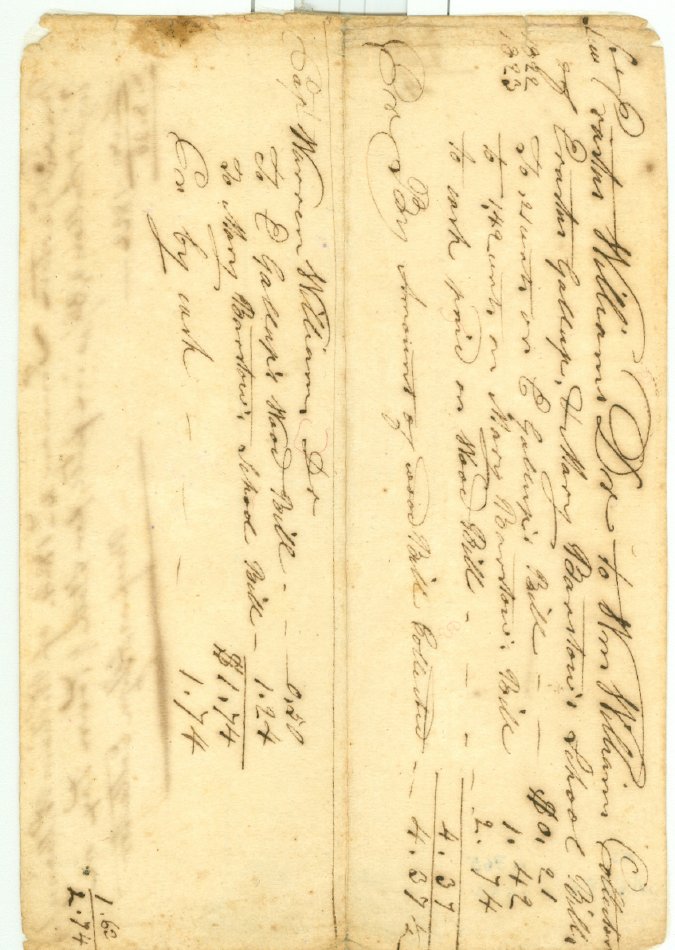 Capt Erastus Williams Dr to Wm Williams Collector
of Erastus Gallup, & Mary Barstow's School Bills
1822
1823
To 21 cents on E Gallup's Bill - - $0.21
to 142 cents on Mary Barstow's Bill 1.42
to cash paid on Wood Bill - - - 2.74
4.37
Cr By Amount of wood Bill Collected - - 4.37½
Capt Warren William Dr
To E Gallup's Wood Bill - - 0.50
To Mary Barstow's School Bill - 1.24
$1.74
Cr by cash - - - 1.74
1.63
2.74